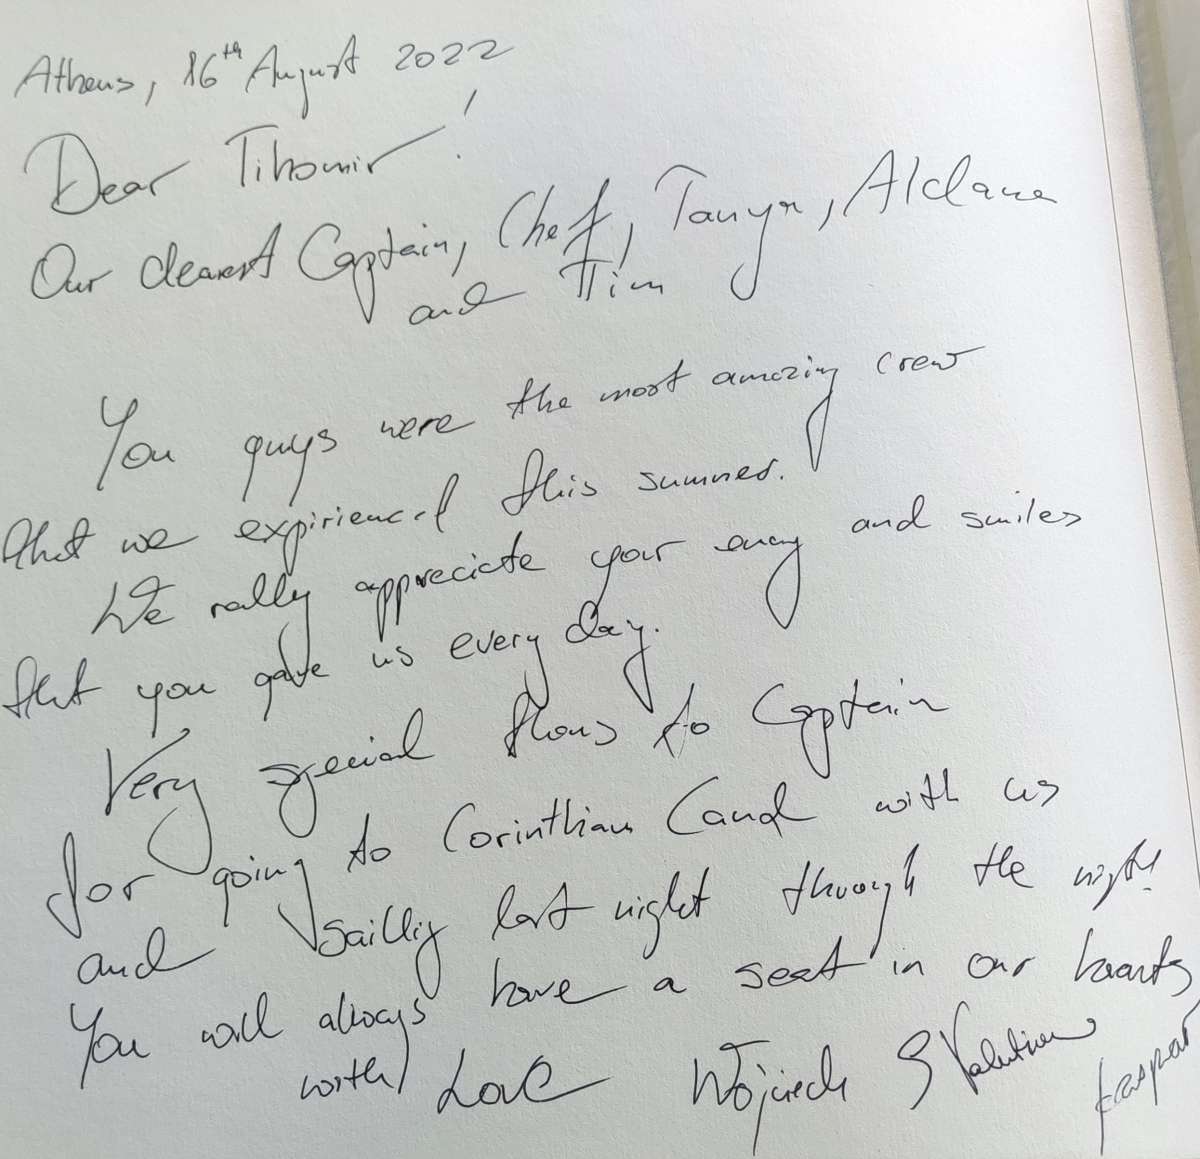 Athens, 16th August 2022
Dear Tihomir!
Our dearest Captain, Chef, Tanya, Aldana
and Tim
You guys were the most amazing crew
that we expirienced this summer.
We rally appreciate your and smiles
that you gave us every day.
Very special to Captain
for going to Corinthian Canal with us
and saillig last night through the night!
You will always have a seat in our hearts
with Love Wojciech Kasper